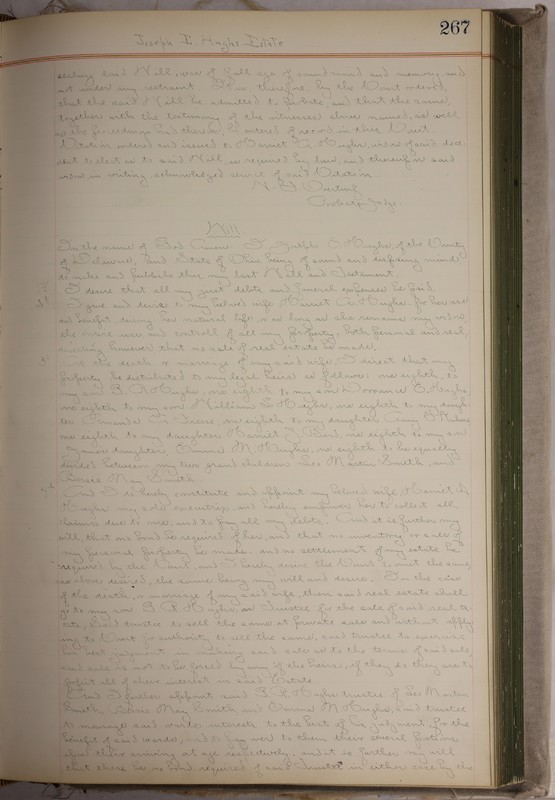 267
Joseph C. Hughs Estate
said Will, was of full age of sound mind and memory, and
not under any restraint. It is therefore, by the Court ordered
that the said Will be admitted to Probate, and that the same,
together with the testimony of the witnesses above named, as well
as the proceedings had therein, be entered of record in this Court
Citation ordered and issued to Harriet A. Hughs, widow of said dece
dent to elect as to said Will as required by law, and thereupon said
widow, in writing, acknowledged service of said Citation
Probate Judge.
Will.
In the name of God Amen. I, Joseph C. Hughs, of the County
of Delaware, and State of Ohio being of sound and disposing mind
do make and publish this my last Will and Testament.
I desire that all my just debts and funeral expenses be paid.
I give and devise to my beloved wife Harriet A. Hughs, for her use
and benefit during her natural life, or as long as she remains my widow,
the entire use and controll of all my property, both personal and real,
however that no sale of real estate be made.
At the death or marriage of my said wife, I direct that my
property be distributed to my legal heirs as follows: one eighth, to
my son B. P. Hughs, one eighth to my son Lorrance E. Hughs,
one eighth to my son William S. Hughs, one eighth to my daugh
ter Amanda one eighth to my daughter
one eighth to my daughter Harriet J. Bird, one eighth to my
daughter, Emma M. Hughs, one eighth to be equally
divided between my two grand children Lee Martin Smith, and
Clorie May Smith
And I do hereby constitute and appoint my beloved wife, Harriet A.
Hughs my sole executrix, and hereby empower her to collect all
claims due to me, and to pay all my debts. And it is further my
will, that no bond be required of her, and that no inventory or sale of
my personal property be made, and no settlement of my estate be
required by the Court, and I hereby desire the Court to omit the same,
as above desired, the same being my will and desire. In the case
of the death, or marriage of my said wife, then said real estate shall
go to my son B. P. Hughs, as Trustee for the sale of said real es
tate, said trustee to sell the same at private sale and without apply
ing to Court for authority to sell the same, said trustee to exercise
his best judgment in making said sale as to the terms of said sale,
and sale is not to be forced by any of the heirs, if they do they are to
forfeit all of their interest in said Estate
And I further appoint said B. P. Hughs trustee of Lee Martin
Smith, Clorie May Smith and Emma M. Hughs, said trustee
to manage said wards interests to the best of his judgment, for the
benefit of said wards, and to pay over to them their several portions
upon their arriving at age respectively, and it is further my will
that there be no bond required of said Trustee in either case by the